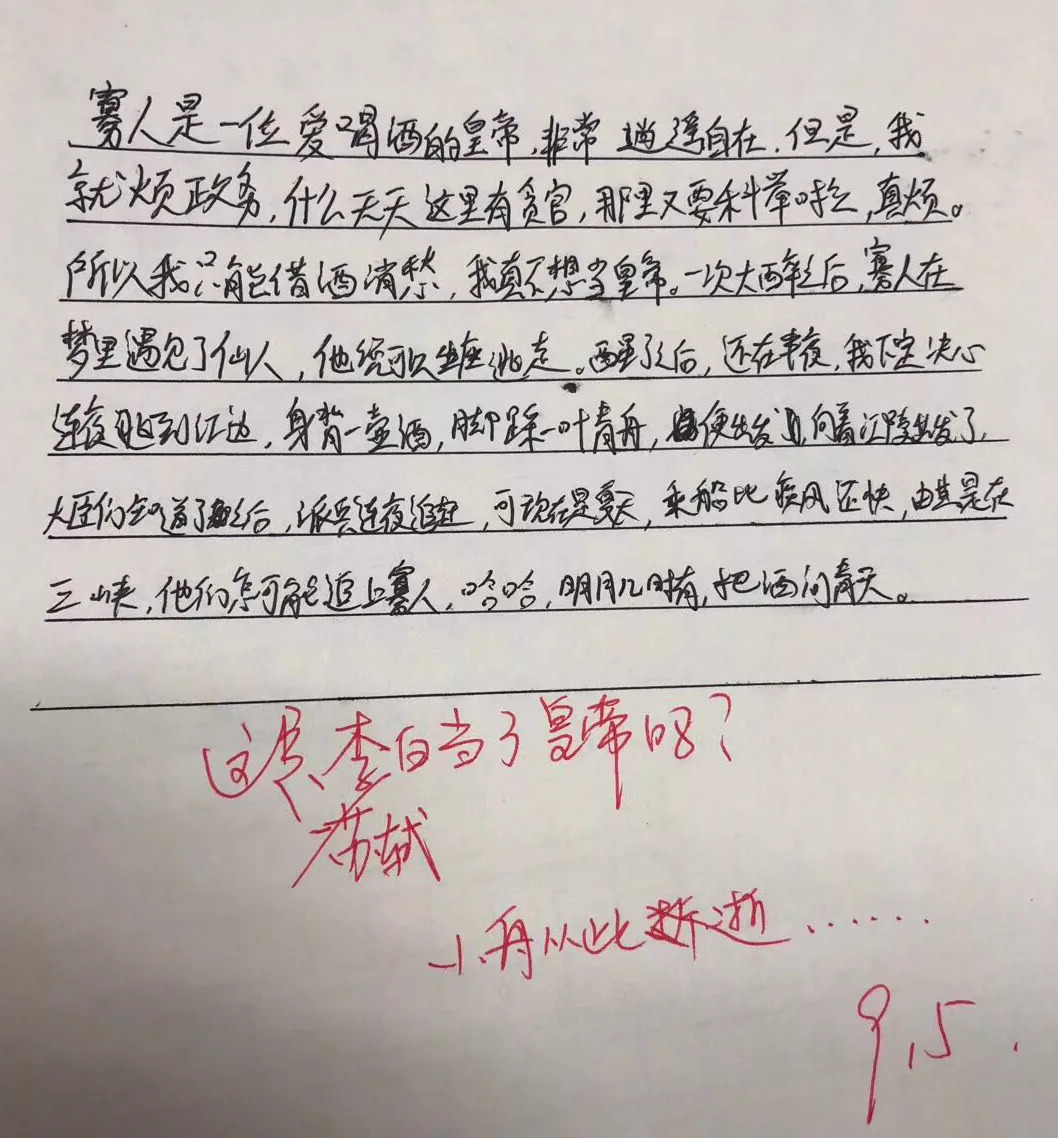 寡人是一位爱喝酒的皇帝,非常逍遥自在.但是,我
就烦政务,什么天天这里有贪官,那里又要科举啥,真烦。
所以我只能借酒消愁,我真不想当皇帝。一次大醉之后,寡人在
梦里遇见了仙人,他可以坐逃走。醒了之后,还在半夜,我下定决心
连夜跑到江边,身背一壶酒,脚踩一叶青舟,便出发向着江陵出发了.
大臣们知道了之后,派兵连夜追赶,可现在是夏天,乘船比疾风还快,由其是在
三峡,他们怎可能追上寡人,哈哈,明月几时有,把酒问青天。
这是李白当了皇帝吗?
苏轼
小舟从此逝......
9.5.